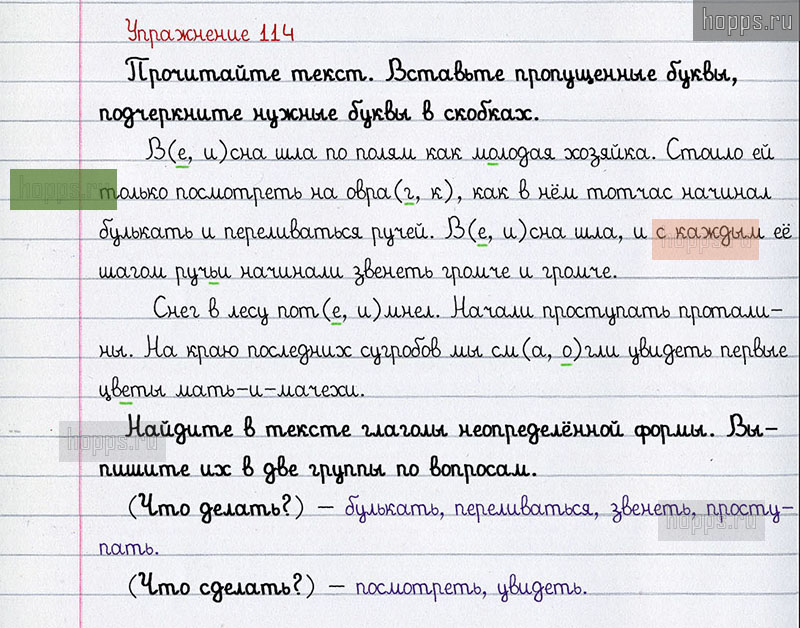 hopps.ru
Упражнение 114
Прочитайте текст. Вставьте пропущенные буквы,
подчеркните нужные буквы в скобках.
В(е, и)сна шла по полям как молодая хозяйка. Стоило ей
hopps.ru
только посмотреть на овра(г, к), как в нём тотчас начинал
булькать и переливаться ручей. В(е, и)сна шла, и с каждым её
hopps.ru
шагом ручьи начинали звенеть громче и громче.
Снег в лесу пот(е, и)мнел. Начали проступать протали-
ны. На краю последних сугробов мы см(а, о)гли увидеть первые
цветы мать-и-мачехи.
Найдите в тексте глаголы неопределённой формы. Вы-
hopps.ru
пишите их в две группы по вопросам.
(Что делать?) – булькать, переливаться, звенеть, просту-
hopps.ru
пать.
(Что сделать?) – посмотреть, увидеть.